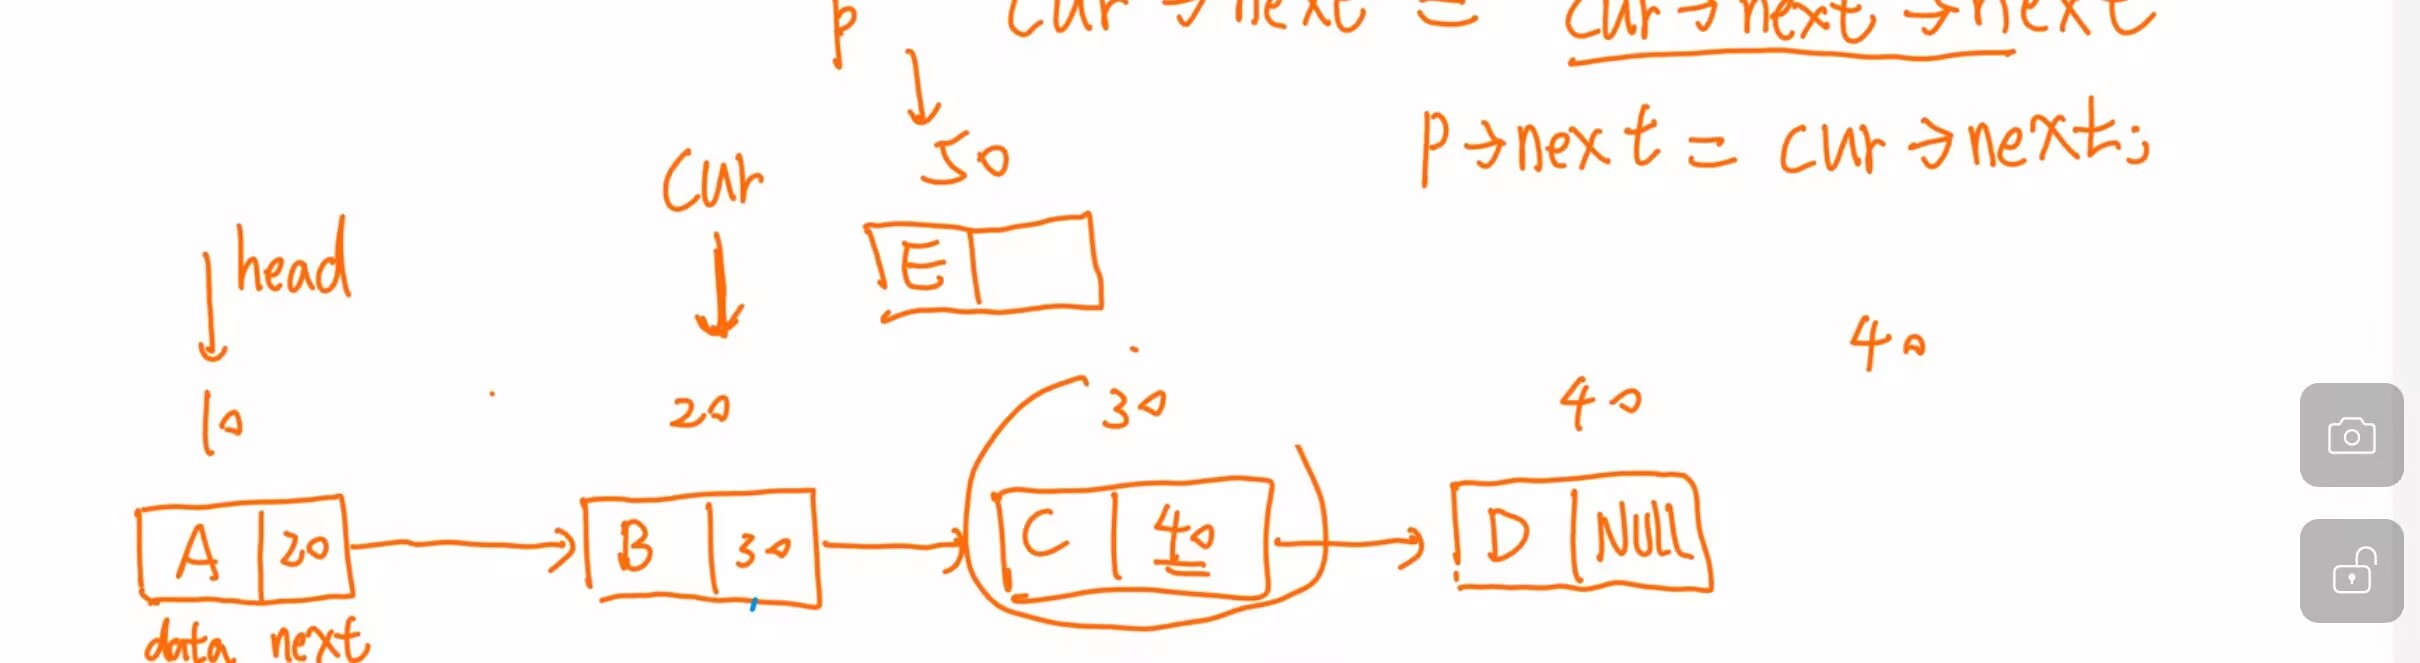 p cur→next = cur→next→next
50 p→next = cur→next;
cur
head
E
40
10 20 30 40
A 20 B 30 C 40 D NULL
data next